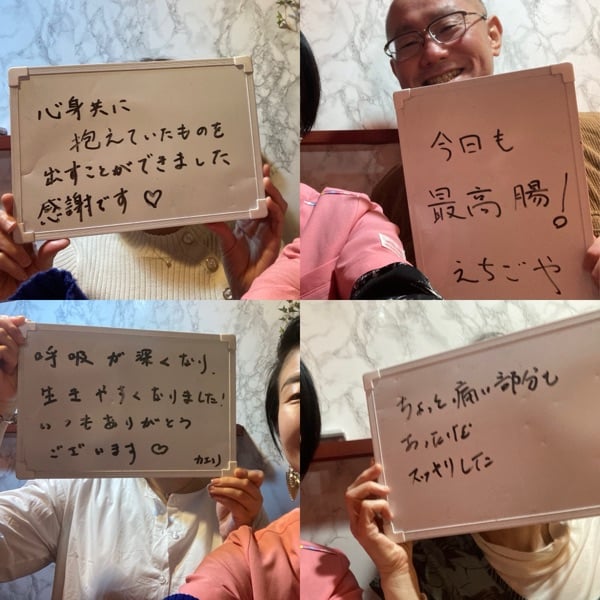 心身共に
抱えていたものを
出すことができました
感謝です♡
今日も
最高腸!
えちごや
呼吸が深くなり、
生きやすくなりました!
いつもありがとう
ございます♡
カエリ
ちょっと痛い部分も
あったけど
スッキリした